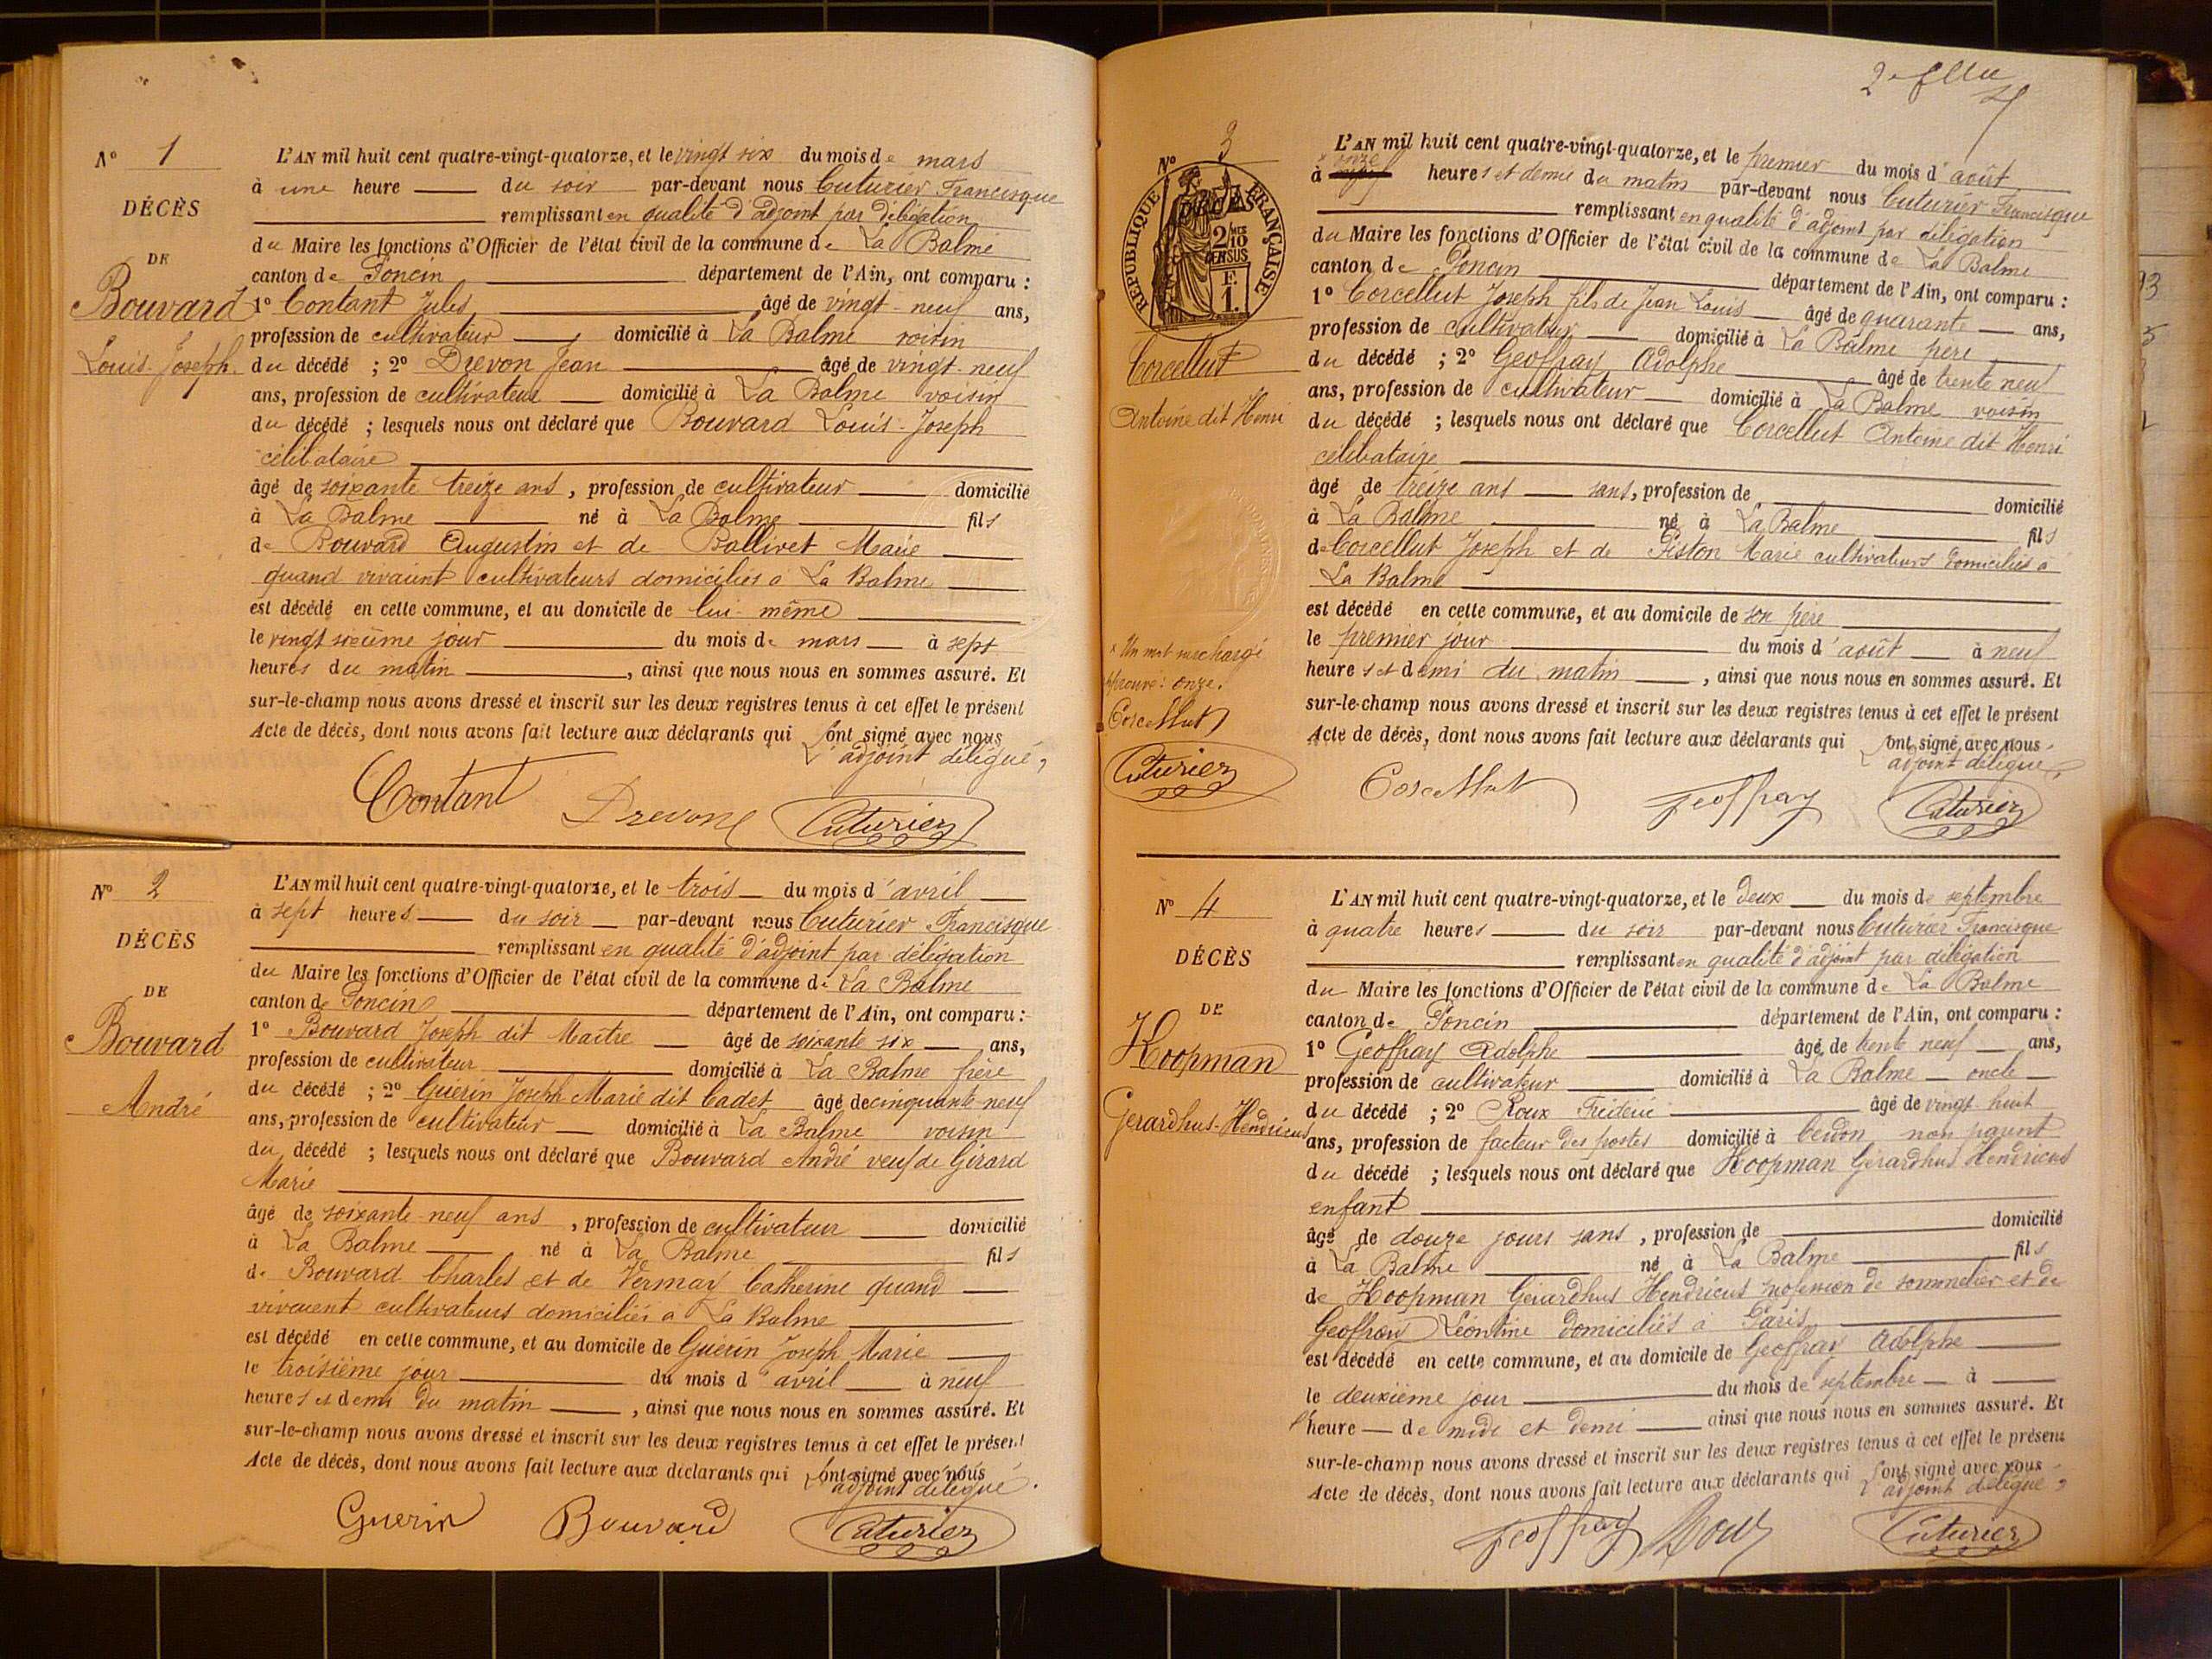 Nº 1
DÉCÈS
DE
Bouvard
Louis-Joseph
L'AN mil huit cent quatre-vingt-quatorze, et le vingt six du mois de mars
à une heure du soir par-devant nous Cuturier Francisque
remplissant en qualité d'adjoint par délégation
du Maire les fonctions d'Officier de l'état civil de la commune de La Balme
canton de Poncin département de l'Ain, ont comparu :
1º Contant Jules âgé de vingt-neuf ans,
profession de cultivateur domicilié à La Balme voisin
du décédé ; 2º Drevon Jean âgé de vingt-neuf
ans, profession de cultivateur domicilié à La Balme voisin
du décédé ; lesquels nous ont déclaré que Bouvard Louis-Joseph
célibataire
âgé de soixante treize ans, profession de cultivateur domicilié
à La Balme né à La Balme fils
de Bouvard Augustin et de Ballivet Marie
quand vivaient cultivateurs domiciliés à La Balme
est décédé en cette commune, et au domicile de lui-même
le vingt sixième jour du mois de mars à sept
heures du matin, ainsi que nous nous en sommes assuré. Et
sur-le-champ nous avons dressé et inscrit sur les deux registres tenus à cet effet le présent
Acte de décès, dont nous avons fait lecture aux déclarants qui ont signé avec nous
l'adjoint délégué,
Contant Drevon Cuturier
Nº 2
DÉCÈS
DE
Bouvard
André
L'AN mil huit cent quatre-vingt-quatorze, et le trois du mois d'avril
à sept heures du soir par-devant nous Cuturier Francisque
remplissant en qualité d'adjoint par délégation
du Maire les fonctions d'Officier de l'état civil de la commune de La Balme
canton de Poncin département de l'Ain, ont comparu :
1º Bouvard Joseph dit Maître âgé de soixante six ans,
profession de cultivateur domicilié à La Balme frère
du décédé ; 2º Guérin Joseph Marie dit Cadet âgé de cinquante-neuf
ans, profession de cultivateur domicilié à La Balme voisin
du décédé ; lesquels nous ont déclaré que Bouvard André veuf de Girard
Marie
âgé de soixante-neuf ans, profession de cultivateur domicilié
à La Balme né à La Balme fils
de Bouvard Charles et de Vermay Catherine quand
vivaient cultivateurs domiciliés à La Balme
est décédé en cette commune, et au domicile de Guérin Joseph Marie
le troisième jour du mois d'avril à neuf
heures et demi du matin, ainsi que nous nous en sommes assuré. Et
sur-le-champ nous avons dressé et inscrit sur les deux registres tenus à cet effet le présent
Acte de décès, dont nous avons fait lecture aux déclarants qui ont signé avec nous
l'adjoint délégué.
Guerin Bouvard Cuturier
Nº 3
DÉCÈS
RÉPUBLIQUE FRANÇAISE
2/10 EN SUS
1 F.
Corcellut
Antoine dit Henri
x Un mot surchargé
approuvé : onze.
Corcellut
Cuturier
L'AN mil huit cent quatre-vingt-quatorze, et le premier du mois d'août
à x onze heures et demie du matin par-devant nous Cuturier Francisque
remplissant en qualité d'adjoint par délégation
du Maire les fonctions d'Officier de l'état civil de la commune de La Balme
canton de Poncin département de l'Ain, ont comparu :
1º Corcellut Joseph fils de Jean Louis âgé de quarante ans,
profession de cultivateur domicilié à La Balme père
du décédé ; 2º Geoffray Adolphe âgé de trente neuf
ans, profession de cultivateur domicilié à La Balme voisin
du décédé ; lesquels nous ont déclaré que Corcellut Antoine dit Henri
célibataire
âgé de treize ans sans, profession de domicilié
à La Balme né à La Balme fils
de Corcellut Joseph et de Piston Marie cultivateurs domiciliés à
La Balme
est décédé en cette commune, et au domicile de son père
le premier jour du mois d'août à neuf
heures et demi du matin, ainsi que nous nous en sommes assuré. Et
sur-le-champ nous avons dressé et inscrit sur les deux registres tenus à cet effet le présent
Acte de décès, dont nous avons fait lecture aux déclarants qui ont signé avec nous
l'adjoint délégué,
Corcellut Geoffray Cuturier
Nº 4
DÉCÈS
DE
Koopman
Gerardhus-Hendricus
L'AN mil huit cent quatre-vingt-quatorze, et le deux du mois de septembre
à quatre heures du soir par-devant nous Cuturier Francisque
remplissant en qualité d'adjoint par délégation
du Maire les fonctions d'Officier de l'état civil de la commune de La Balme
canton de Poncin département de l'Ain, ont comparu :
1º Geoffray Adolphe âgé de trente neuf ans,
profession de cultivateur domicilié à La Balme oncle
du décédé ; 2º Roux Frédéric âgé de vingt-huit
ans, profession de facteur des postes domicilié à Cerdon non parent
du décédé ; lesquels nous ont déclaré que Koopman Gérardhus Hendricus
enfant
âgé de douze jours sans, profession de domicilié
à La Balme né à La Balme fils
de Koopman Gérardhus Hendricus profession de sommelier et de
Geoffray Léontine domiciliés à Paris
est décédé en cette commune, et au domicile de Geoffray Adolphe
le deuxième jour du mois de septembre à
l'heure de midi et demi ainsi que nous nous en sommes assuré. Et
sur-le-champ nous avons dressé et inscrit sur les deux registres tenus à cet effet le présent
Acte de décès, dont nous avons fait lecture aux déclarants qui ont signé avec nous
l'adjoint délégué,
Geoffray Roux Cuturier